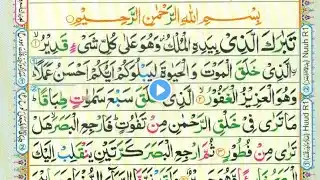 بِسْمِ اللهِ الرَّحْمٰنِ الرَّحِيْمِ
تَبٰرَكَ الَّذِىْ بِيَدِهِ الْمُلْكُ وَهُوَ عَلٰى كُلِّ شَىْءٍ قَدِيْرٌ ۙ﴿۱﴾
الَّذِىْ خَلَقَ الْمَوْتَ وَالْحَيٰوةَ لِيَبْلُوَكُمْ اَيُّكُمْ اَحْسَنُ عَمَلًا ؕ
وَهُوَ الْعَزِيْزُ الْغَفُوْرُ ۙ﴿۲﴾ الَّذِىْ خَلَقَ سَبْعَ سَمٰوٰتٍ طِبَاقًا ؕ
مَا تَرٰى فِىْ خَلْقِ الرَّحْمٰنِ مِنْ تَفٰوُتٍ ؕ فَارْجِعِ الْبَصَرَ ۙ هَلْ
تَرٰى مِنْ فُطُوْرٍ ﴿۳﴾ ثُمَّ ارْجِعِ الْبَصَرَ كَرَّتَيْنِ يَنْقَلِبْ اِلَيْكَ
Nuuh R1
Huud R1